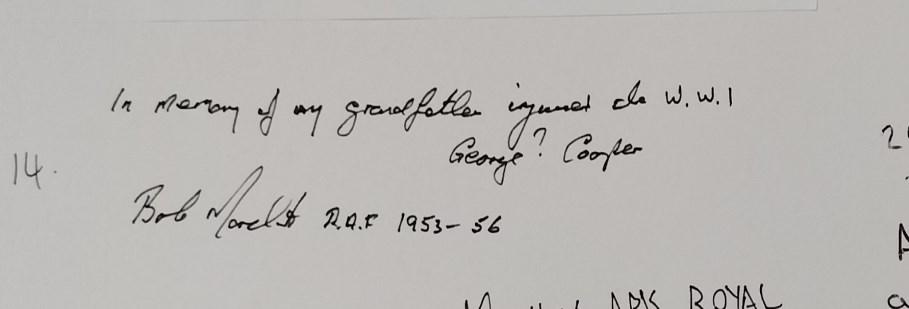 In memory of my grandfather injured in W.W.1
George? Cooper
14.
Bob R.A.F 1953-56
ARK ROYAL